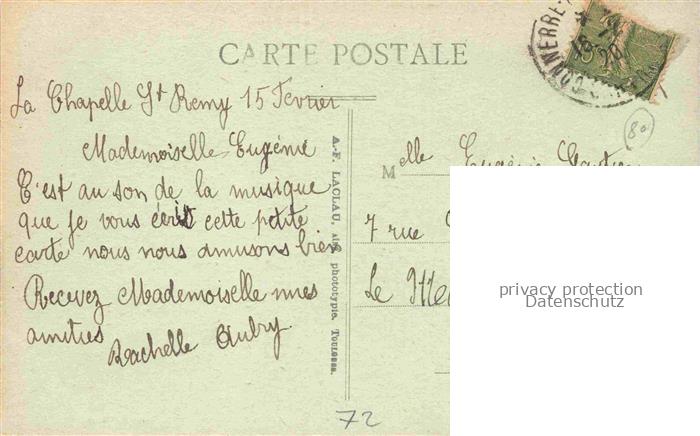 CARTE POSTALE
La Chapelle St Remy 15 Fevrier
Mademoiselle Eugénie
C'est au son de la musique
que je vous écrit cette petite
carte nous nous amusons bien
Recevez Mademoiselle mes
amities
Rachelle Aubry
A.-F. LACLAU, phototypie. Toulouse.
Melle Eugénie
7 rue
Le
80
72
privacy protection
Datenschutz